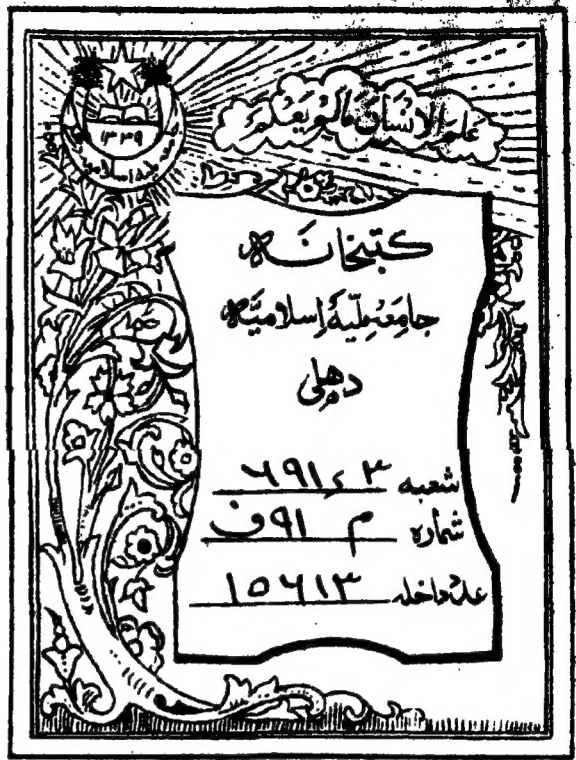 علم الانسان مالم يعلم
۱۳۳۹
جامعہ ملیہ اسلامیہ
کتبخانہ
جامعہ ملیۂ اسلامیہ
دھلی
شعبہ ۶۹۱ء۳
شمارہ م ۹۱ ف
داخلہ ۱۵۶۱۳